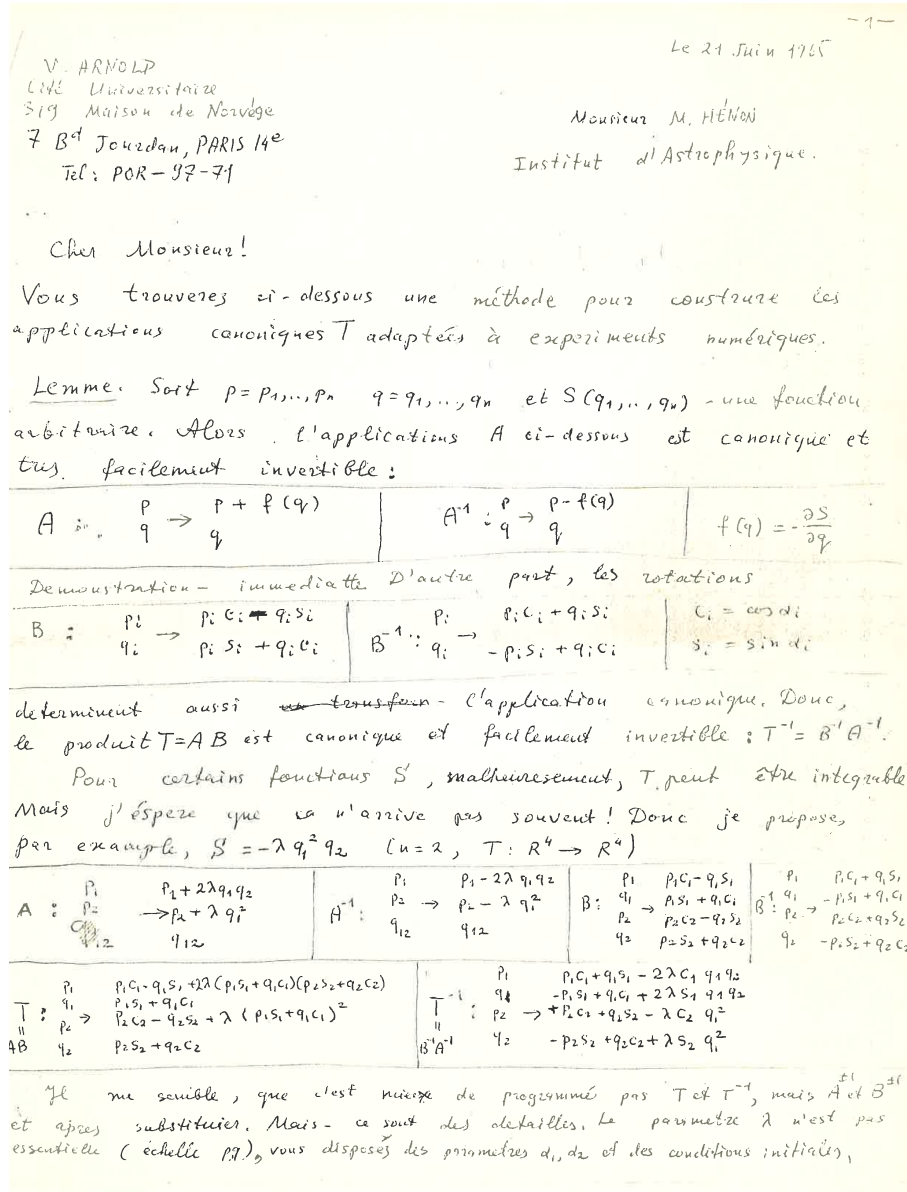 -1-
Le 21 Juin 1965
V. ARNOLD
Cité Universitaire
319 Maison de Norvége
Monsieur M. HÉNON
7 Bd Jourdan, PARIS 14e
Institut d'Astrophysique.
Tel: POR-97-71
Cher Monsieur!
Vous trouverez ci-dessous une méthode pour construire les
applications canoniques T adaptées à experiments numériques.
Lemme. Soit p=p₁,..,pₙ q=q₁,..,qₙ et S(q₁,..,qₙ) - une fonction
arbitraire. Alors l'applications A ci-dessous est canonique et
tres facilement invertible:
A : p → p + f(q) A⁻¹ : p → p-f(q) f(q) = -∂S/∂q
q q q q
Demonstration - immediatte D'autre part, les rotations
B : pᵢ → pᵢcᵢ - qᵢsᵢ B⁻¹ : pᵢ → pᵢcᵢ + qᵢsᵢ cᵢ = cos αᵢ
qᵢ pᵢsᵢ + qᵢcᵢ qᵢ -pᵢsᵢ + qᵢcᵢ sᵢ = sin αᵢ
determinent aussi un transform - l'application canonique. Donc,
le produit T=AB est canonique et facilement invertible : T⁻¹= B⁻¹A⁻¹.
Pour certains fonctions S, malheuresement, T peut être integrable
Mais j'éspere que ca n'arrive pas souvent! Donc je propose,
par example, S = -λ q₁² q₂ (n=2, T: R⁴ → R⁴)
A : p₁ p₁+2λq₁q₂ A⁻¹: p₁ p₁-2λq₁q₂ B: p₁ p₁c₁-q₁s₁ B⁻¹: p₁ p₁c₁+q₁s₁
p₂ → p₂+λq₁² p₂ → p₂-λq₁² q₁ → p₁s₁+q₁c₁ q₁ → -p₁s₁+q₁c₁
q₁₂ q₁₂ q₁₂ q₁₂ p₂ p₂c₂-q₂s₂ p₂ p₂c₂+q₂s₂
q₂ p₂s₂+q₂c₂ q₂ -p₂s₂+q₂c₂
T : p₁ p₁c₁-q₁s₁+2λ(p₁s₁+q₁c₁)(p₂s₂+q₂c₂) T⁻¹ : p₁ p₁c₁+q₁s₁-2λc₁q₁q₂
q₁ → p₁s₁+q₁c₁ q₁ → -p₁s₁+q₁c₁+2λs₁q₁q₂
p₂ p₂c₂-q₂s₂+λ(p₁s₁+q₁c₁)² p₂ +p₂c₂+q₂s₂-λc₂q₁²
=AB q₂ p₂s₂+q₂c₂ =B⁻¹A⁻¹ q₂ -p₂s₂+q₂c₂+λs₂q₁²
Il me semble, que c'est mieux de programmé pas T et T⁻¹, mais A±1 et B±1
et apres substituier. Mais - ce sont des detailles. Le parametre λ n'est pas
essentielle (échelle p,q), vous disposés des parametres α₁,α₂ et des conditions initiales,